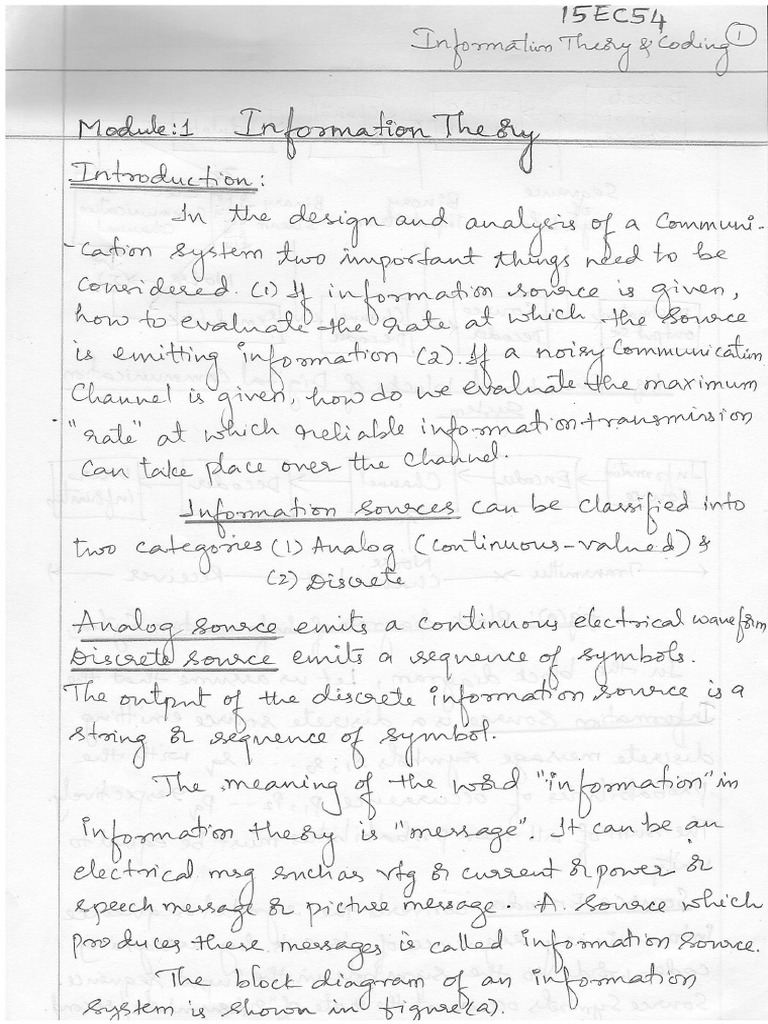 15EC54
Information Theory & Coding 1
Module:1 Information Theory
Introduction:
In the design and analysis of a Communi-
-cation system two important things need to be
considered. (1) If information source is given,
how to evaluate the rate at which the source
is emitting information (2). If a noisy Communication
Channel is given, how do we evaluate the maximum
"rate" at which reliable information transmission
can take place over the channel.
Information sources can be classified into
two categories (1) Analog (continuous-valued) &
(2) Discrete
Analog source emits a continuous electrical waveform
Discrete source emits a sequence of symbols.
The output of the discrete information source is a
string or sequence of symbol.
The meaning of the word "information" in
information theory is "message". It can be an
electrical msg such as vtg or current or power or
speech message or picture message. A source which
produces these messages is called information source.
The block diagram of an information
system is shown in figure(a).